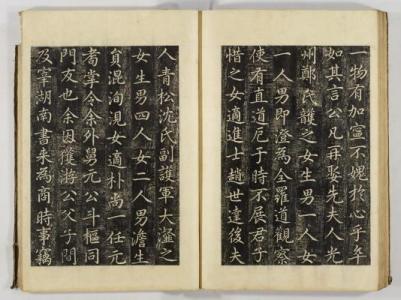 一物有加豈不媿於心乎卒
如其言公凡再娶先夫人光
州鄭氏護之女生男一人女
一人男即澄為全羅道觀察
使有直道厄于時不展君子
惜之女適進士趙世達後夫
人青松沈氏副護軍大之
女生男四人女二人男澹生
貟混洵涀女適朴尚一任元
耇掌令余外舅元公斗樞同
門友也余因獲游公父子間
及宰湖南書来為商時事竊